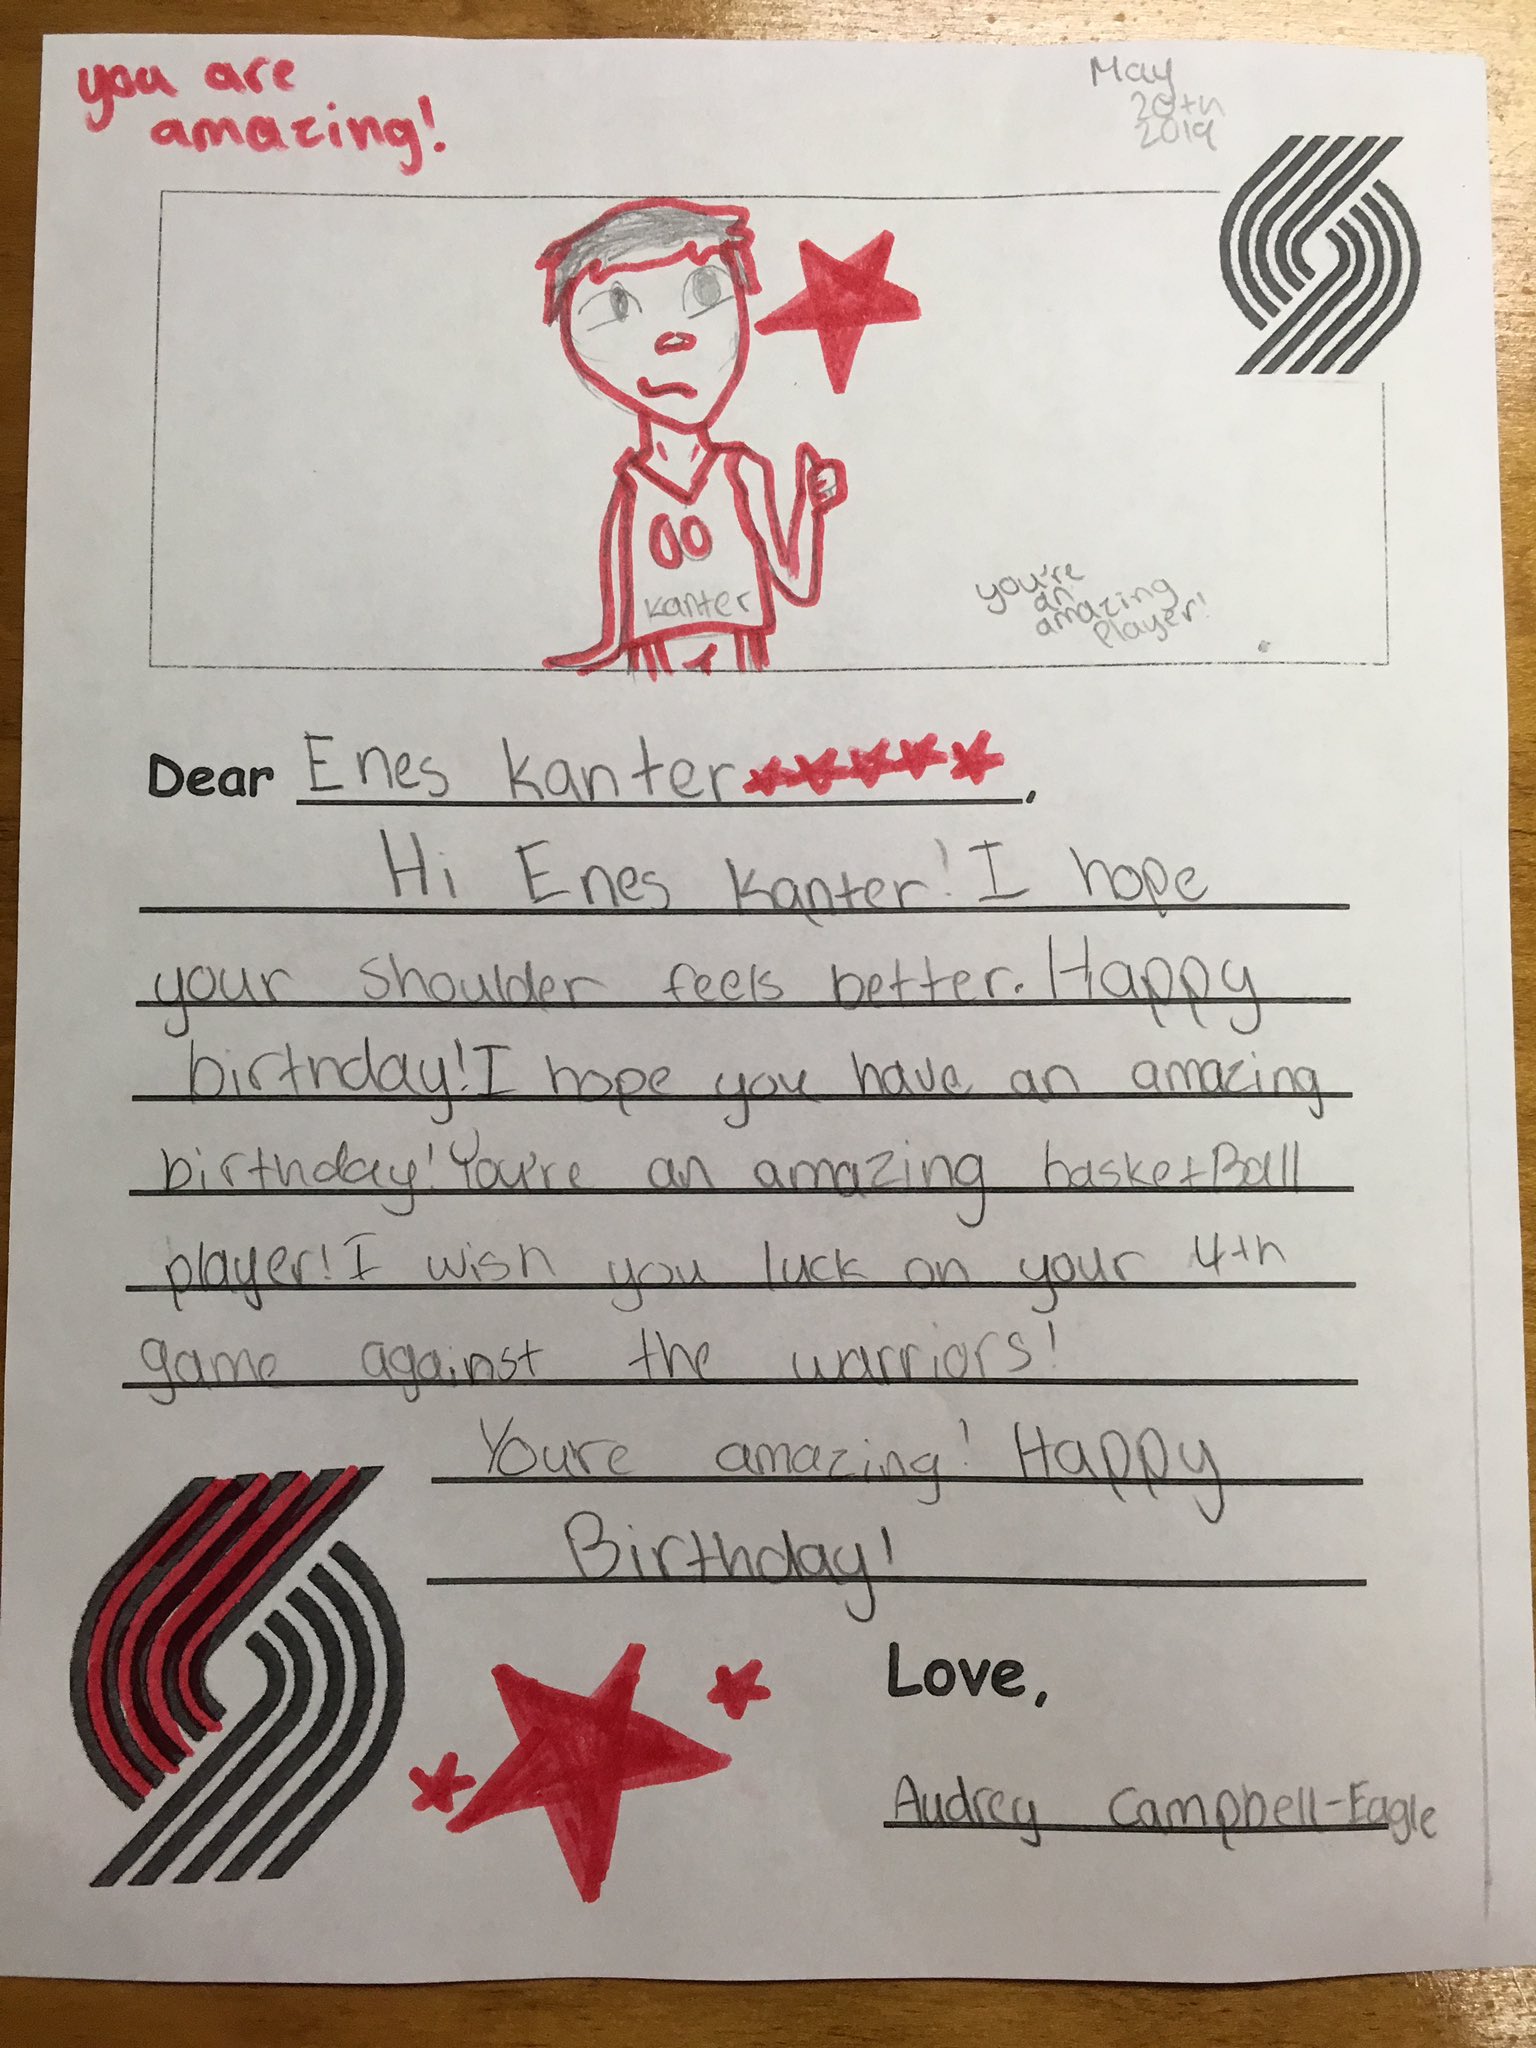 you are
amazing!
May
20th
2019
00
Kanter
you're
an
amazing
player!
Dear Enes Kanter,
Hi Enes Kanter! I hope
your shoulder feels better. Happy
birthday! I hope you have an amazing
birthday! You're an amazing basketBall
player! I wish you luck on your 4th
game against the warriors!
You're amazing! Happy
Birthday!
Love,
Audrey Campbell-Eagle